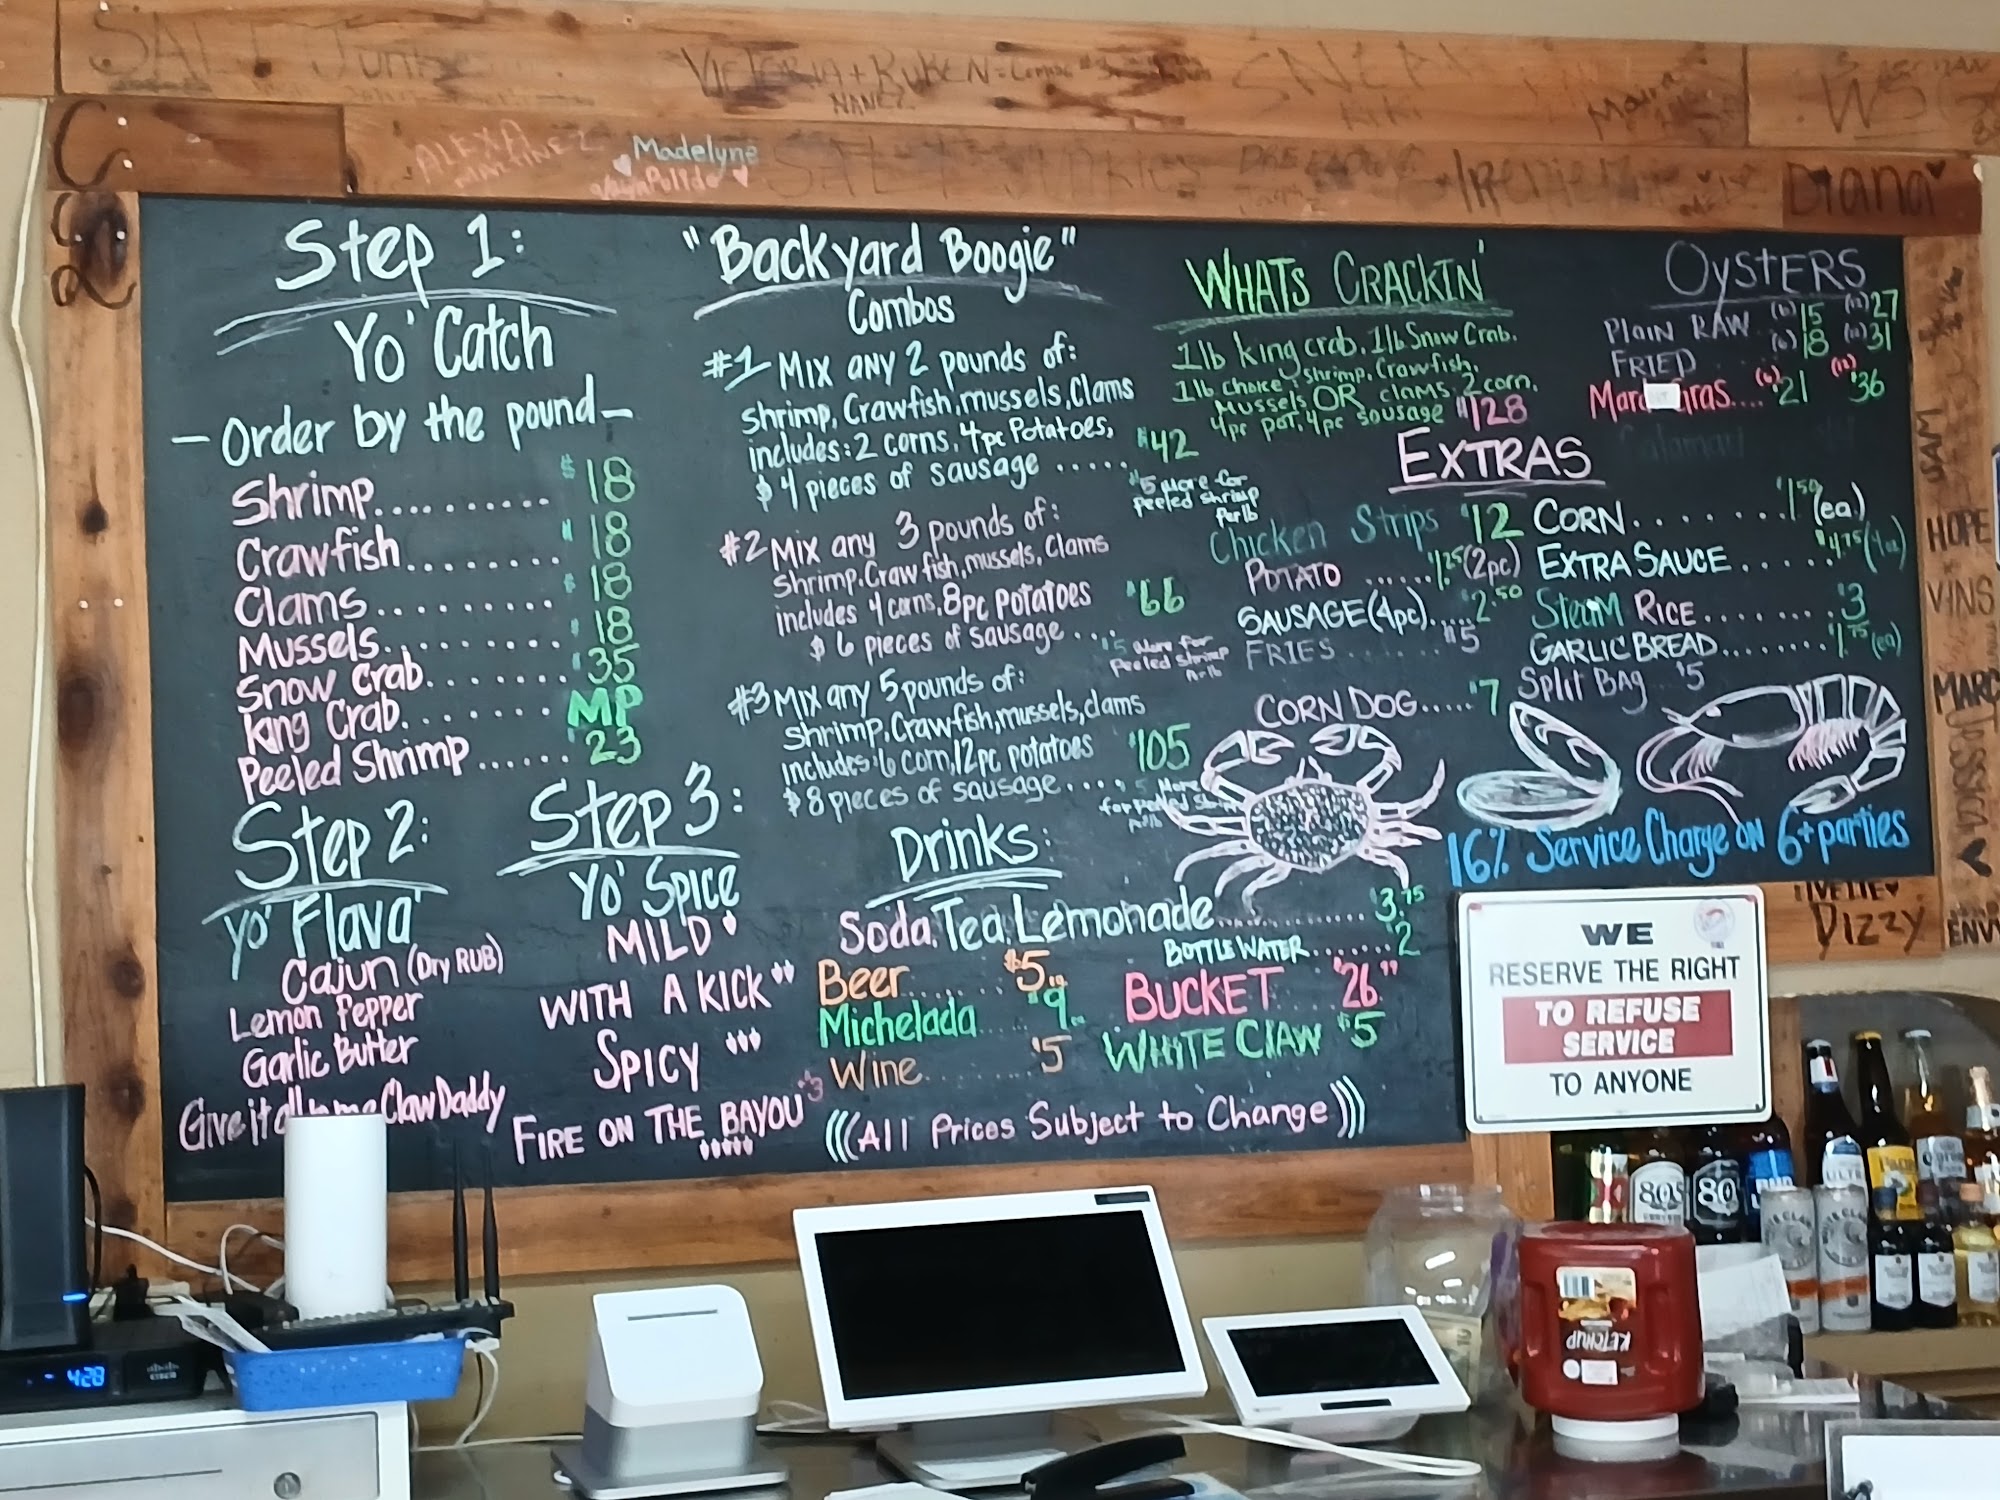 VICTORIA + RUBEN
NANEZ
ALEXA
MARTINEZ
Madelyne
Diana
Step 1:
Yo' Catch
- Order by the pound -
Shrimp.......... $18
Crawfish........ $18
Clams......... $18
Mussels......... $18
Snow Crab....... $35
King Crab....... MP
Peeled Shrimp...... $23
Step 2:
Yo' Flava'
Cajun (Dry RUB)
Lemon Pepper
Garlic Butter
Give it all to me Claw Daddy
Step 3:
Yo' Spice
MILD
WITH A KICK
SPICY
FIRE ON THE BAYOU $3
"Backyard Boogie"
Combos
#1 Mix any 2 pounds of:
shrimp, Crawfish, mussels, Clams
includes: 2 corns, 4pc Potatoes,
$ 4 pieces of sausage ..... $42
$5 More for
peeled shrimp
Per lb
#2 Mix any 3 pounds of:
Shrimp, Crawfish, mussels, Clams
includes 4 corns, 8pc potatoes
$ 6 pieces of sausage .... $66
$5 More for
peeled shrimp
Per lb
#3 Mix any 5 pounds of:
shrimp, Crawfish, mussels, clams
includes: 6 corn, 12pc potatoes
$ 8 pieces of sausage.... $105
$5 More
for peeled shrimp
per lb
Drinks:
Soda, Tea, Lemonade............ $3.75
BOTTLE WATER....... $2
Beer....... $5
Michelada.... $9
Wine....... $5
BUCKET $26
WHITE CLAW $5
(((All Prices Subject to Change)))
WHATS CRACKIN'
1 lb king crab, 1 lb Snow Crab.
1 lb choice: shrimp, Crawfish,
mussels OR clams. 2 corn.
4pc pot, 4pc sausage $128
OYSTERS
Plain RAW (6) $15 (12) $27
FRIED (6) $18 (12) $31
Mardi Gras.... (6) $21 (12) $36
Calamari
EXTRAS
Chicken Strips $12
POTATO ...... $1.25 (2pc)
SAUSAGE (4pc).... $2.50
FRIES ....... $5
CORN DOG..... $7
CORN........ $1.50 (ea.)
EXTRA SAUCE...... $4.75 (4oz)
Steam RICE........ $3
GARLIC BREAD........ $1.75 (ea)
Split Bag $5
16% Service Charge on 6+ parties
HOPE
VINS
MARC
JESSICA
Dizzy
ENVY
WE
RESERVE THE RIGHT
TO REFUSE
SERVICE
TO ANYONE
805
805
KETCHUP
CISCO
4:28